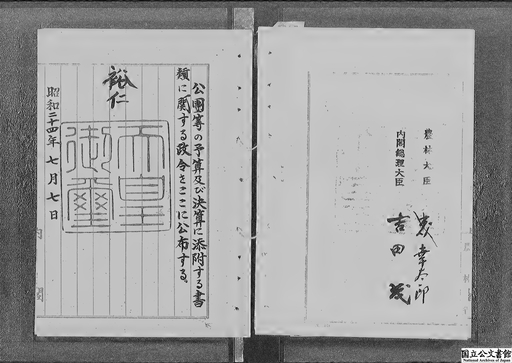 農林大臣
森幸太郎
内閣總理大臣
吉田茂
公團等の予算及び決算に添附する書
類に関する政令をここに公布する。
裕仁
天皇
御璽
昭和二十四年七月七日
国立公文書館
National Archives of Japan